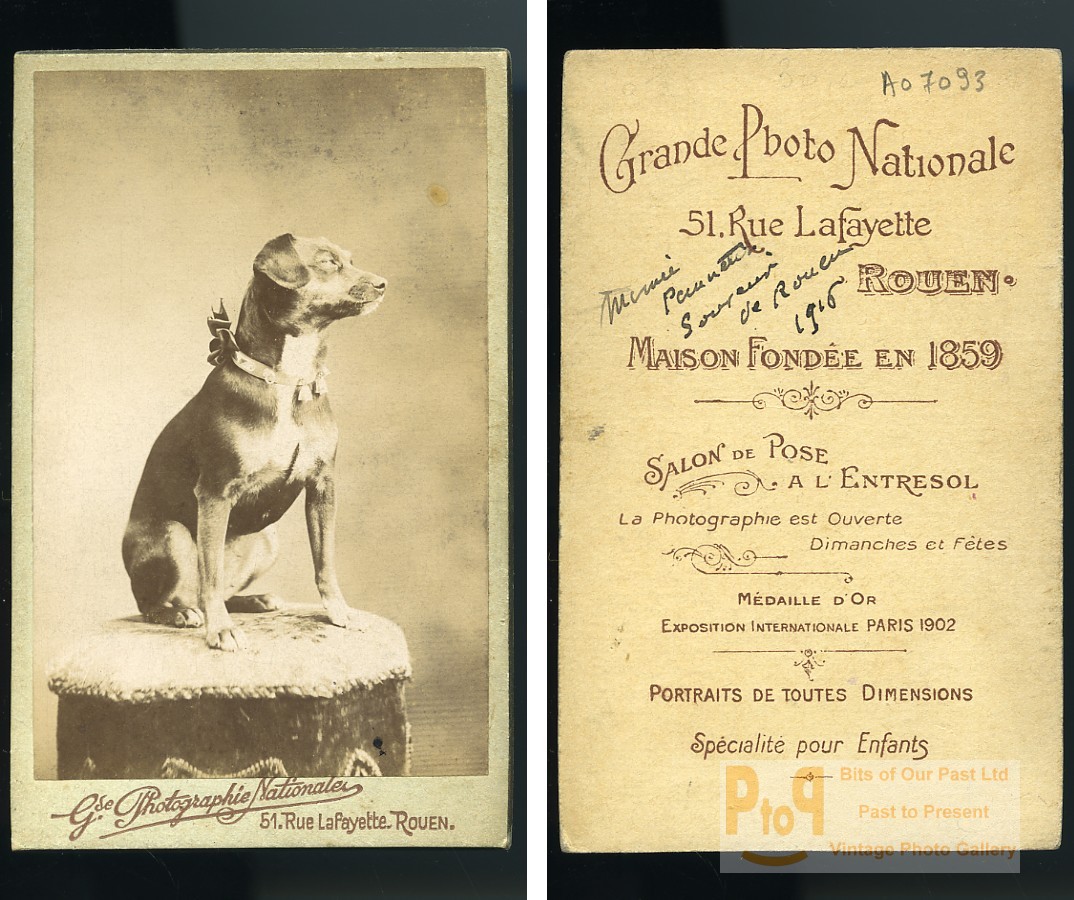 Gde Photographie Nationale
51. Rue Lafayette_ Rouen.
A07093
Grande Photo Nationale
51, Rue Lafayette
Rouen.
Souvenir
de Rouen
Maison Fondée en 1859
Salon de Pose
a l'Entresol
La Photographie est Ouverte
Dimanches et Fêtes
Médaille d'Or
Exposition Internationale PARIS 1902
Portraits de toutes Dimensions
Spécialité pour Enfants
PtoP
Bits of Our Past Ltd
Past to Present
Vintage Photo Gallery